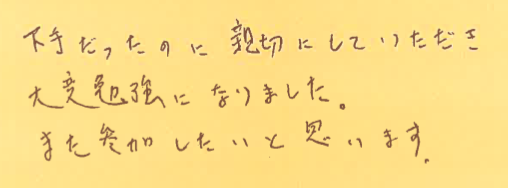 下手だったのに親切にしていただき
大変勉強になりました。
また参加したいと思います。